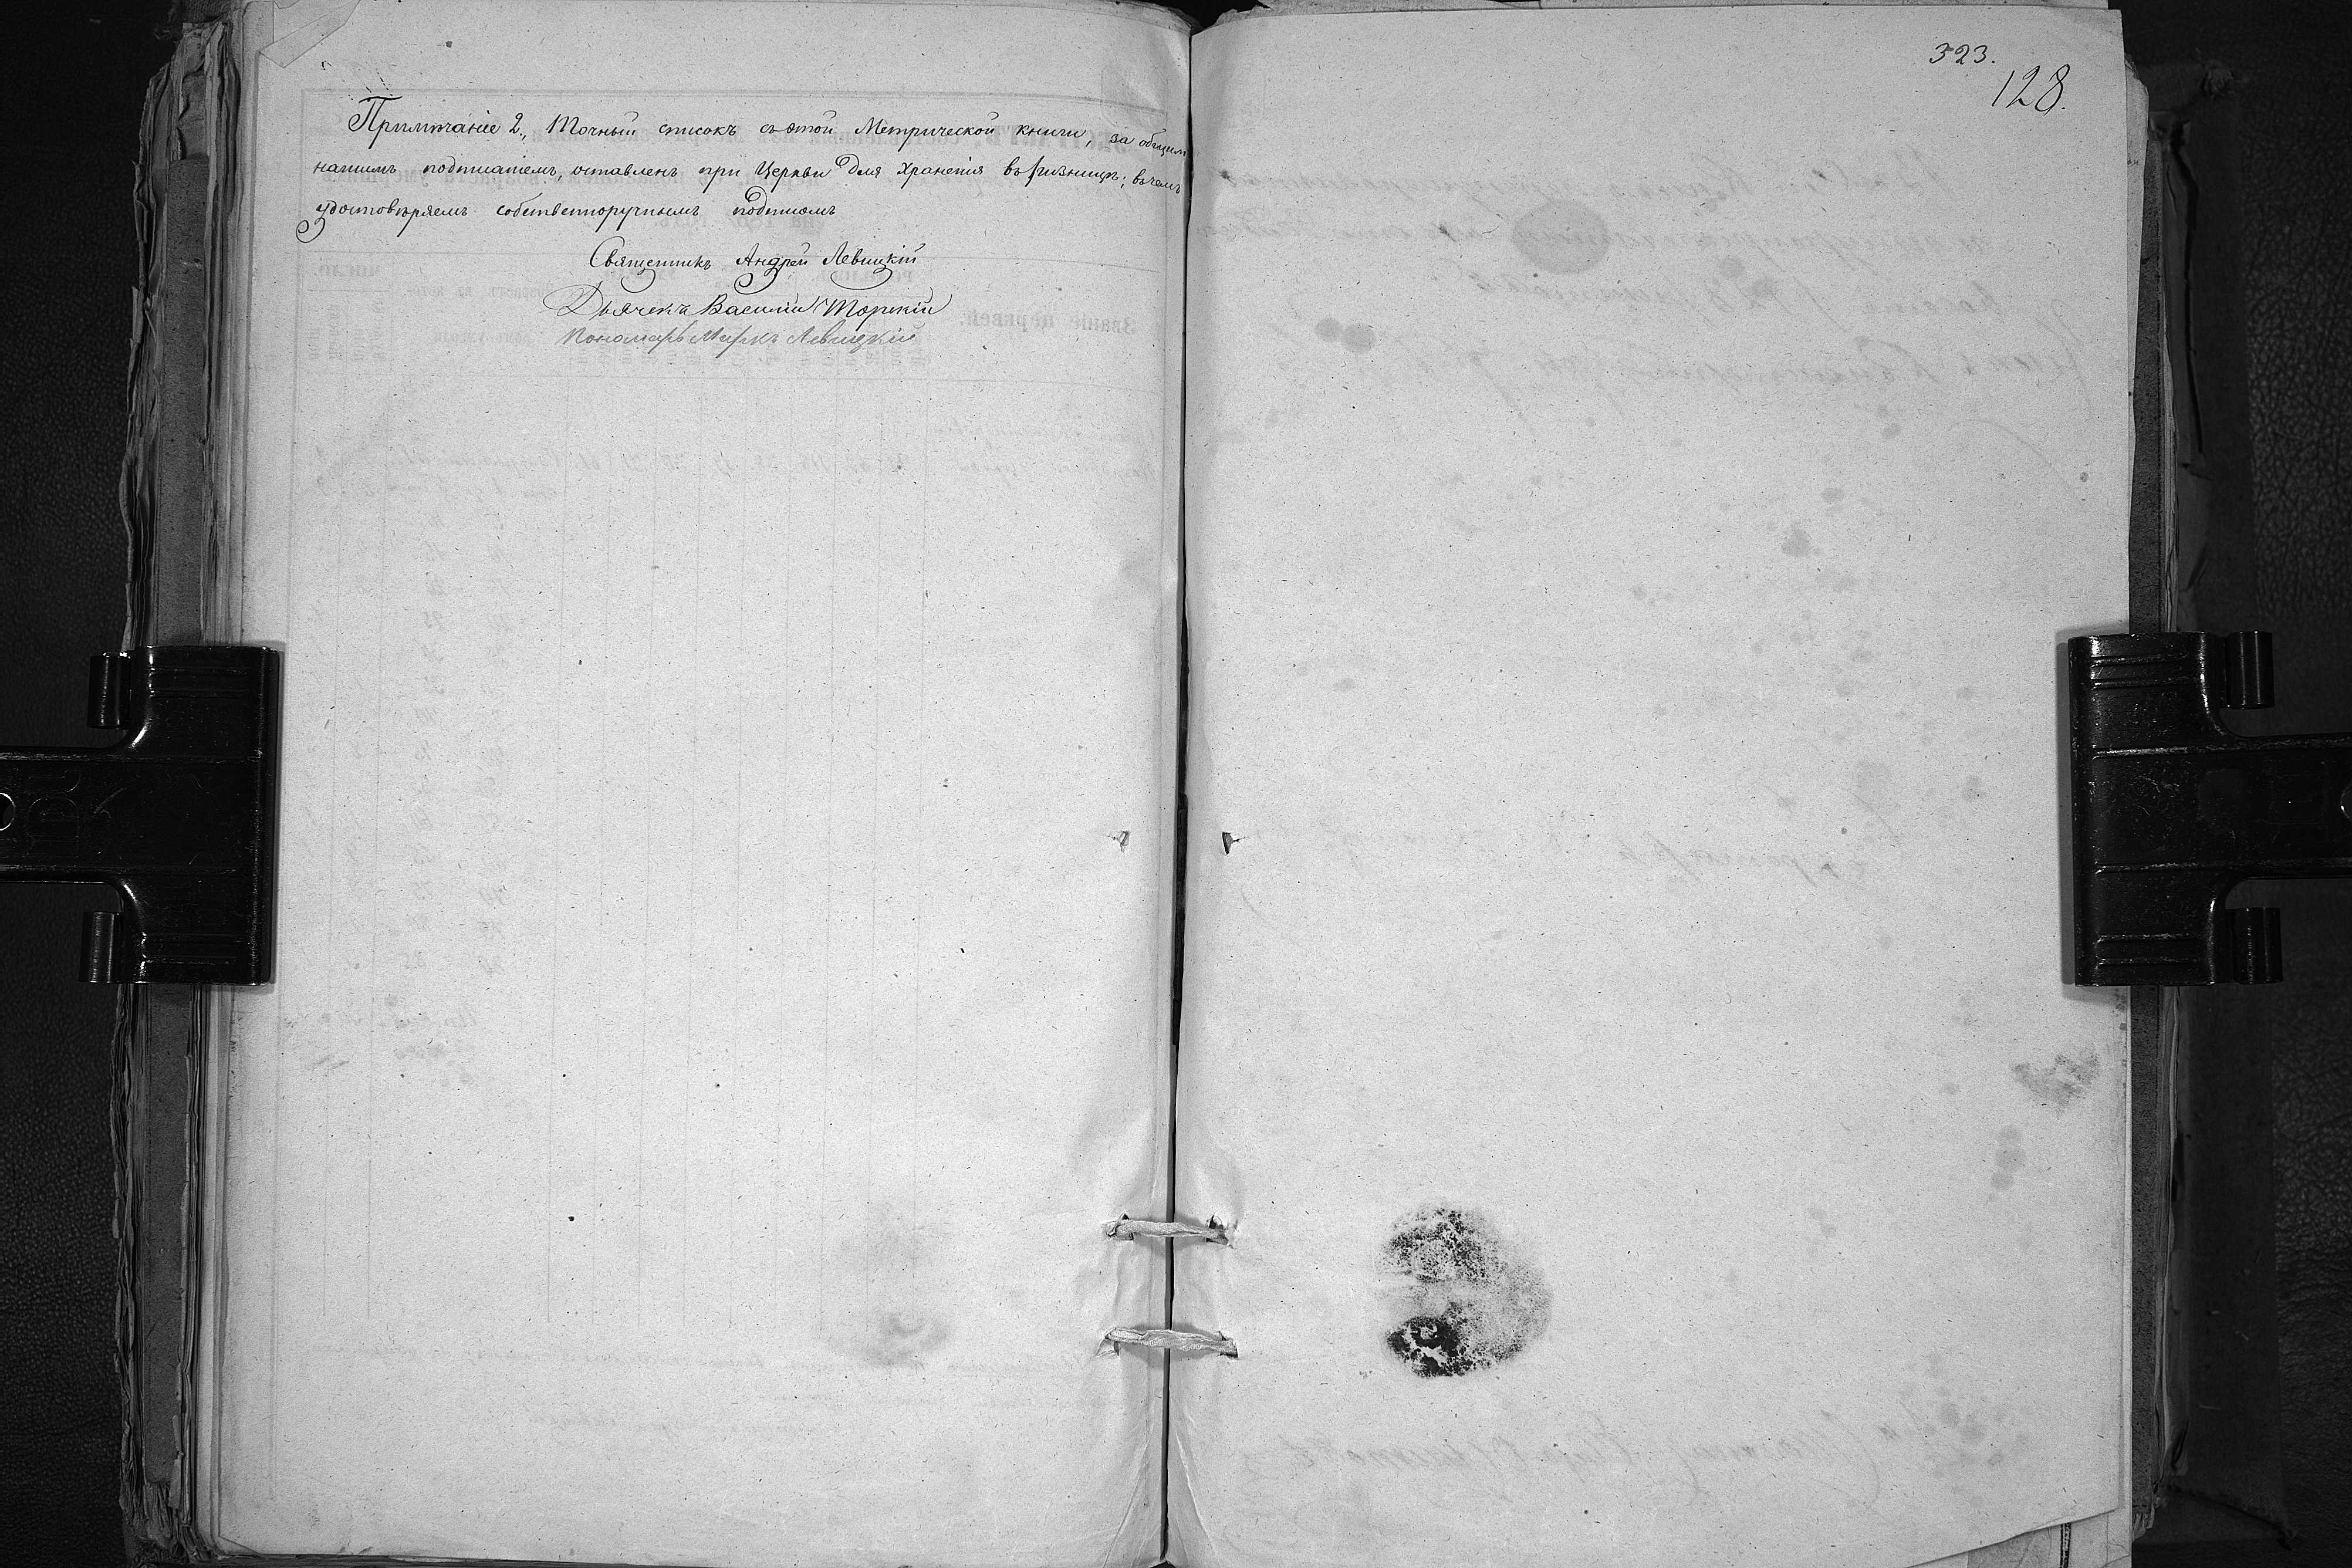 Примѣчаніе 2., Точный списокъ съ этой Метрической книги, за общимъ
нашимъ подписаніемъ, оставленъ при Церкви для храненія въ ризницѣ; въ чемъ
удостовѣряемъ собственноручнымъ подписомъ
Священникъ Андрей Левицкій
Дьячекъ Василій Торскій
Пономарь Маркъ Левицкій
323.
128.